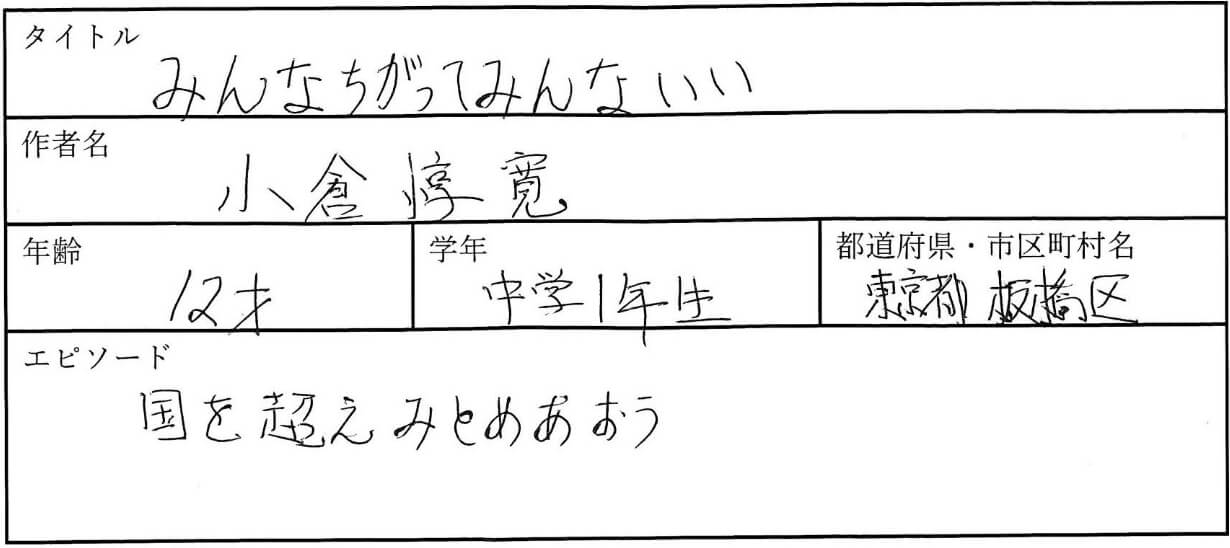 タイトル
みんなちがってみんないい
作者名
小倉惇寛
年齢
12才
学年
中学1年生
都道府県・市区町村名
東京都 板橋区
エピソード
国を超えみとめあおう